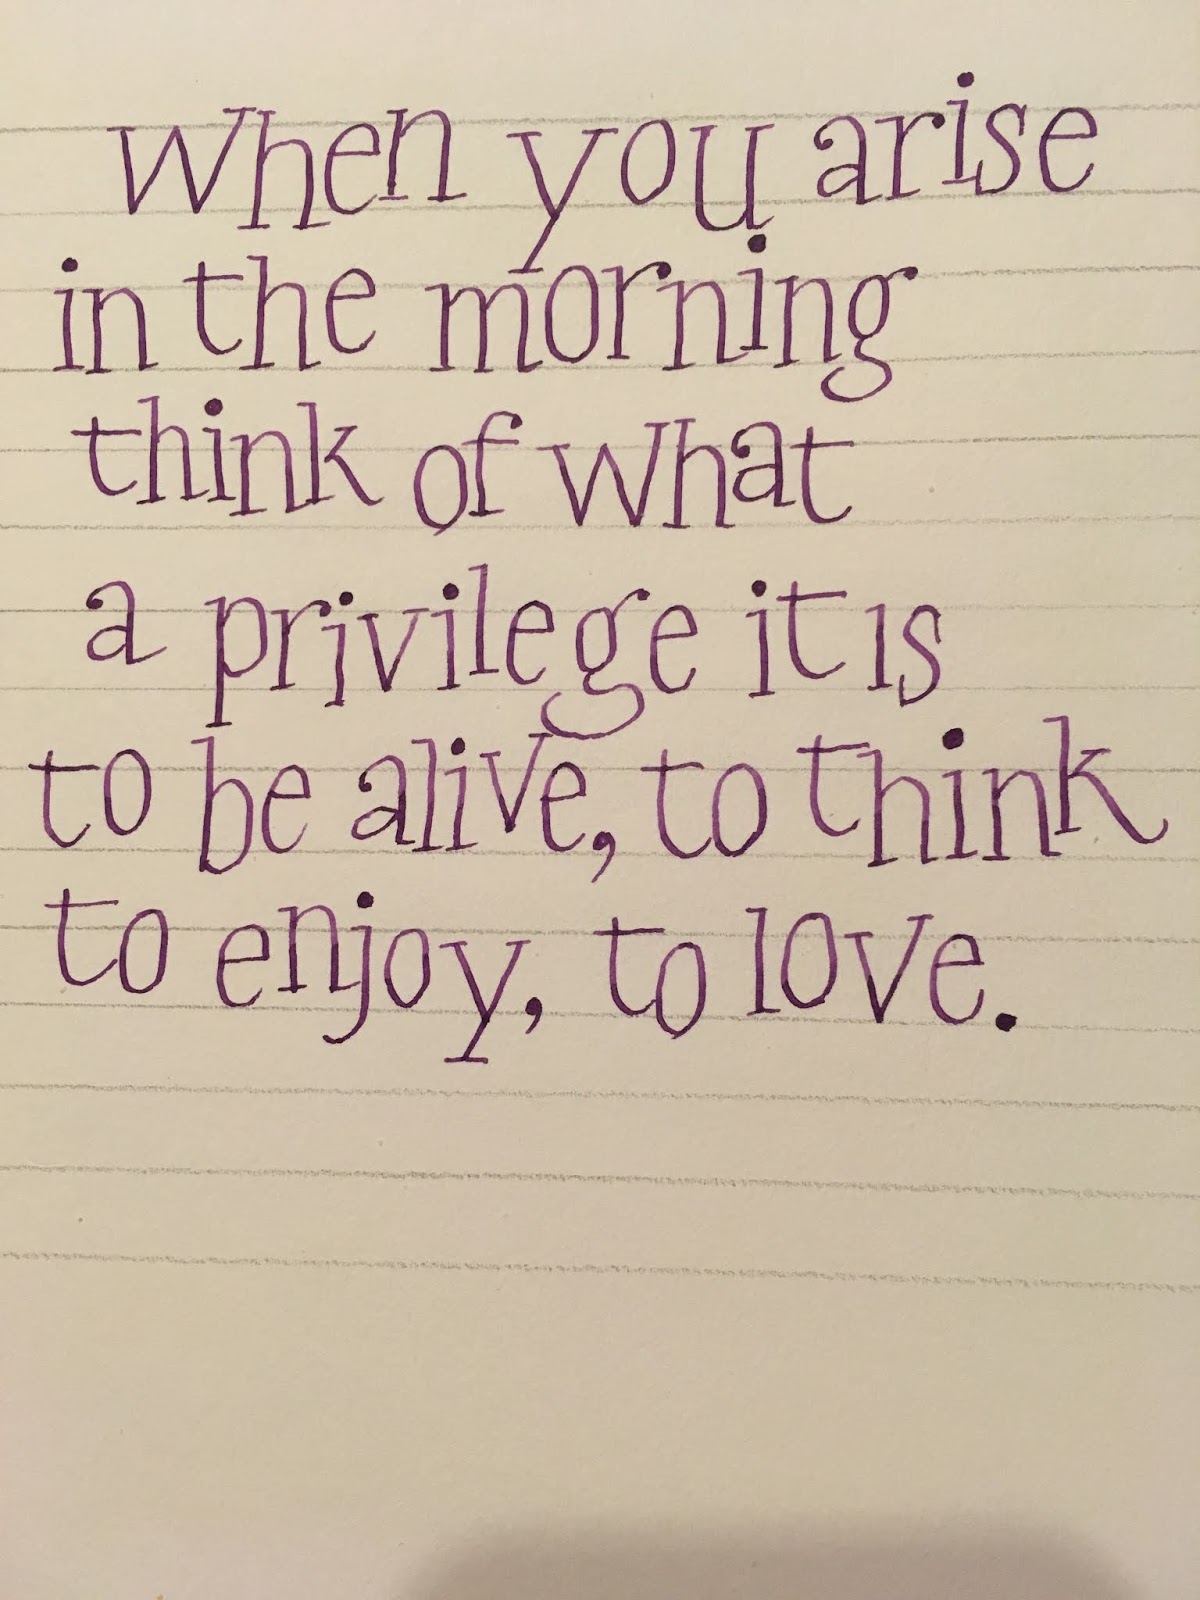 When you arise
in the morning
think of what
a privilege it is
to be alive, to think
to enjoy, to love.